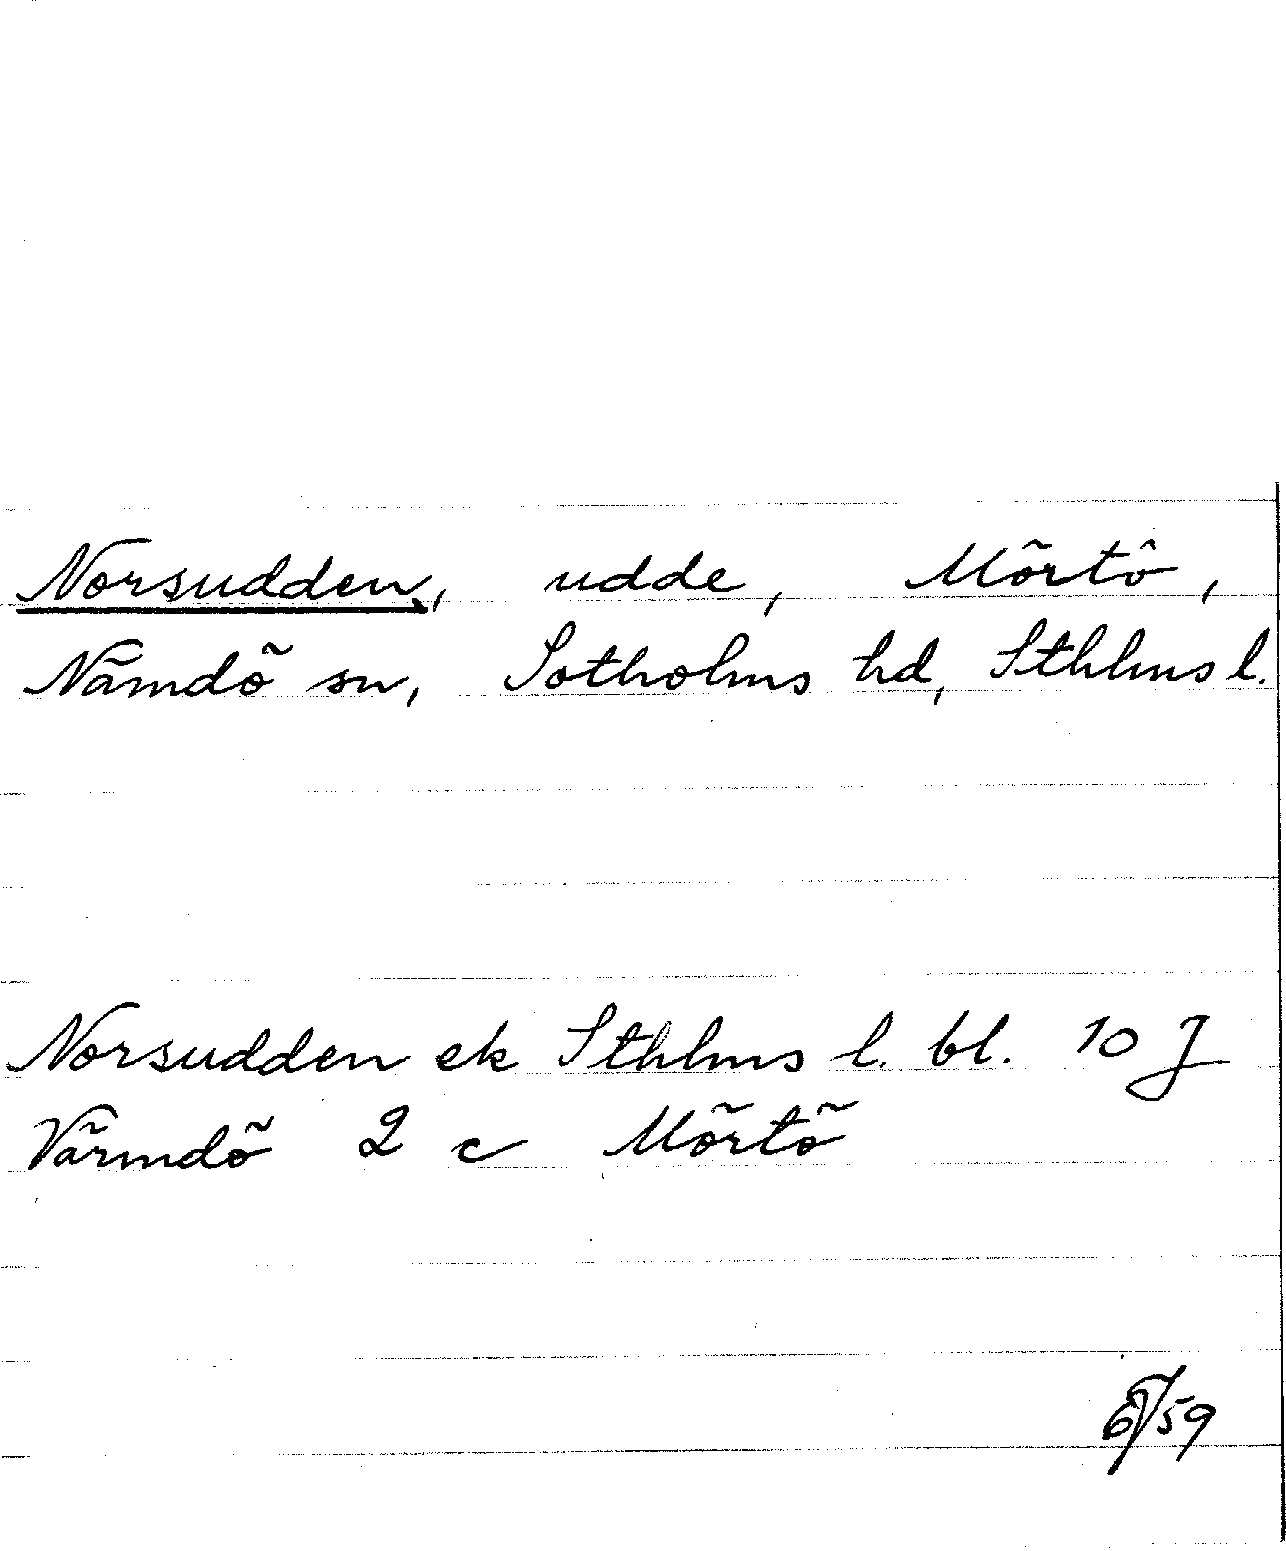 Norsudden, udde, Mörtö,
Nämdö sn, Sotholms hd, Sthlms l.
Norsudden ek Sthlms l. bl. 10 J
Värmdö 2 c Mörtö
/59